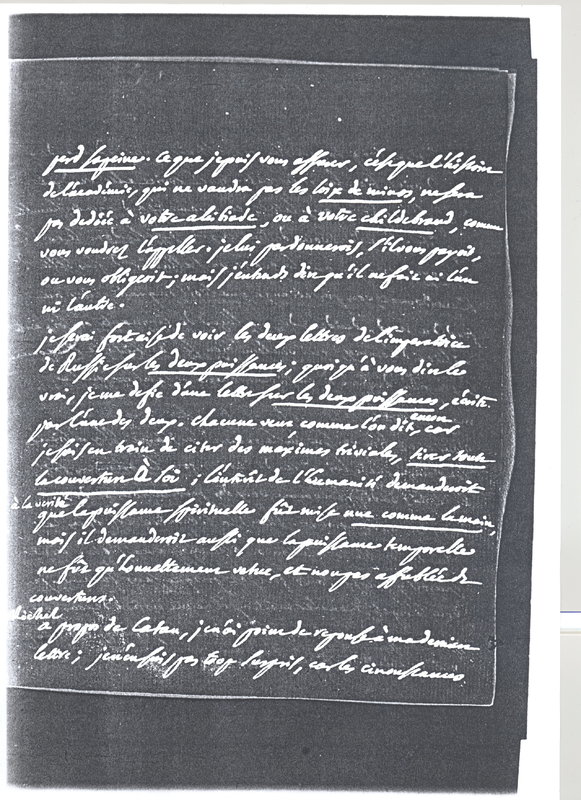 perd sa peine. Ce que je puis vous assurer, c'est que l'histoire
de l'académie, qui ne vaudra pas les loix de minos, ne sera
pas dediée à votre alcibiade, ou à votre childebrand, comme
vous voudrez l'appeller. je lui pardonnerois, s'il vous payoit,
ou vous obligeoit; mais j'entends dire qu'il ne fait ni l'un
ni l'autre.
je serai fort aise de voir les deux lettres de l'imperatrice
de Russie sur les deux puissances; quoiqu'à vous dire le
vrai, je me defie d'une lettre sur les deux puissances, écrite
par l'une des deux. chacune veut comme l'on dit, car
je suis en train de citer des maximes triviales, tirer toute
la couverture à soi; l'intérêt de l'humanité demanderoit
à la verité
que la puissance spirituelle fût mise nue comme la main,
mais il demanderoit aussi que la puissance temporelle
ne fût qu'honnettement vetue, et non pas affublée de
couvertures.
à propos de Catau, je n'ai point de reponse à ma derniere
lettre; je n'en suis pas trop surpris, car les circonstances